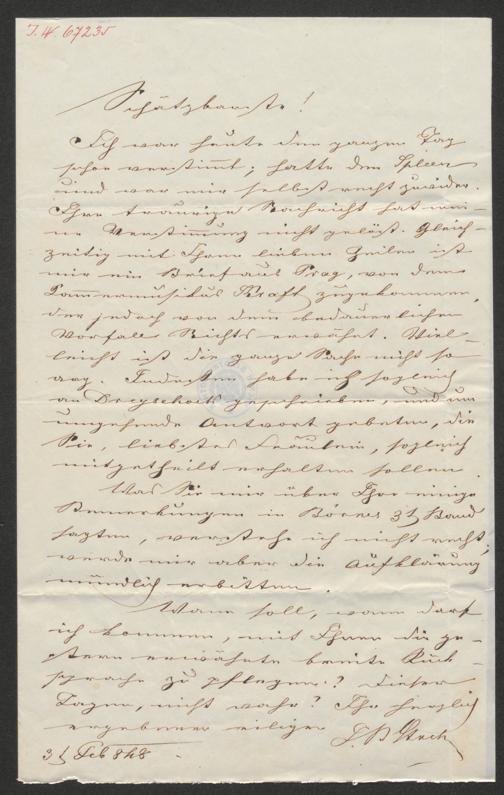 I. N. 67235
Schätzbarste!
Ich war heute den ganzen Tag
schon verstimmt; hatte den Spleen
und war mir selbst recht zuwider.
Ihre traurige Nachricht hat mei-
ne Verstimmung nicht gelöst. Gleich-
zeitig mit Ihren lieben Zeilen ist
mir ein Brief aus Prag, von dem
Kammermusikus Kraft zugekommen,
der jedoch von dem bedauerlichen
Vorfall Nichts erwähnt. Viel-
leicht ist die ganze Sache nicht so
arg. Indessen habe ich sogleich
an Dreyschock geschrieben, und um
umgehende Antwort gebeten, die
Sie, liebstes Fräulein, sogleich
mitgetheilt erhalten sollen.
Was Sie mir über Ihre einige
Bemerkungen in Börnes 3t Band
sagten, verstehe ich nicht recht,
werde mir aber die Aufklärung
mündlich erbitten.
Wann soll, wann darf
ich kommen, mit Ihnen die ge-
stern erwähnte breite Rück-
sprache zu pflegen? Dieser
Tagen, nicht wahr? Ihr herzlich
ergebener eiliger
3t Feb 848